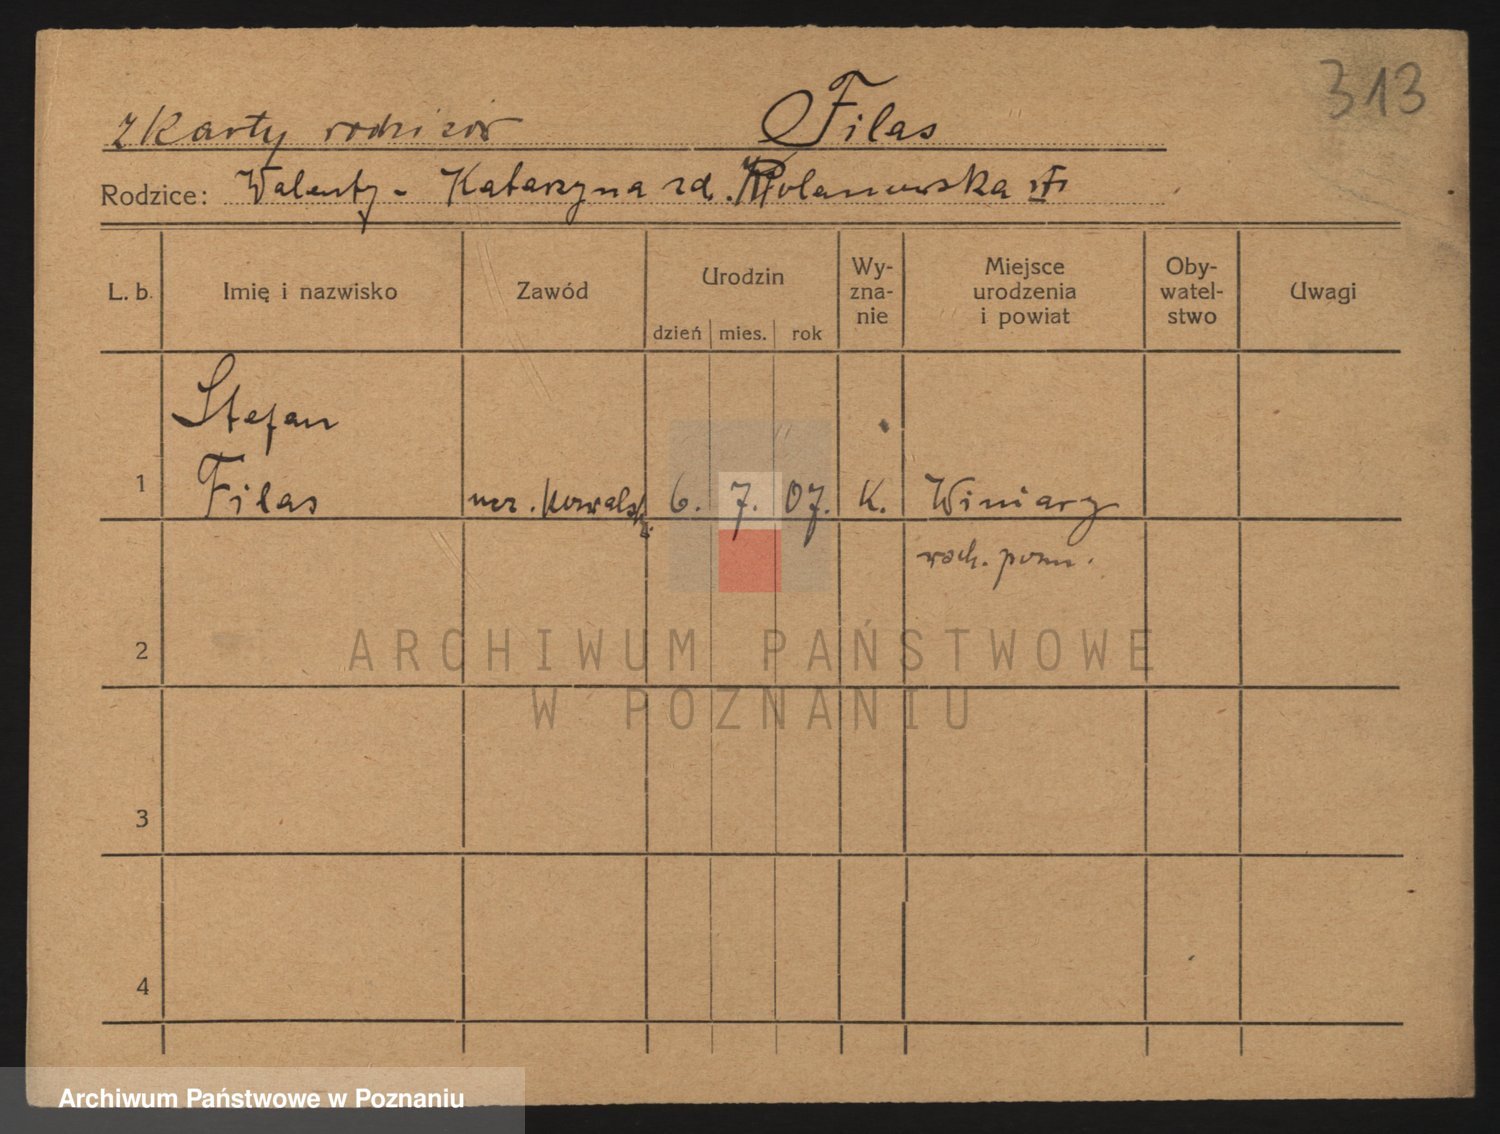 313
z Karty rodziców Filas
Rodzice: Walenty - Katarzyna zd. Wolanowska
L. b. Imię i nazwisko Zawód Urodzin dzień mies. rok Wy-zna-nie Miejsce urodzenia i powiat Oby-watel-stwo Uwagi
Stefan
1 Filas ucz. kowalsk. 6. 7. 07. K. Winiary
2
3
4
ARCHIWUM PAŃSTWOWE
W POZNANIU
Archiwum Państwowe w Poznaniu